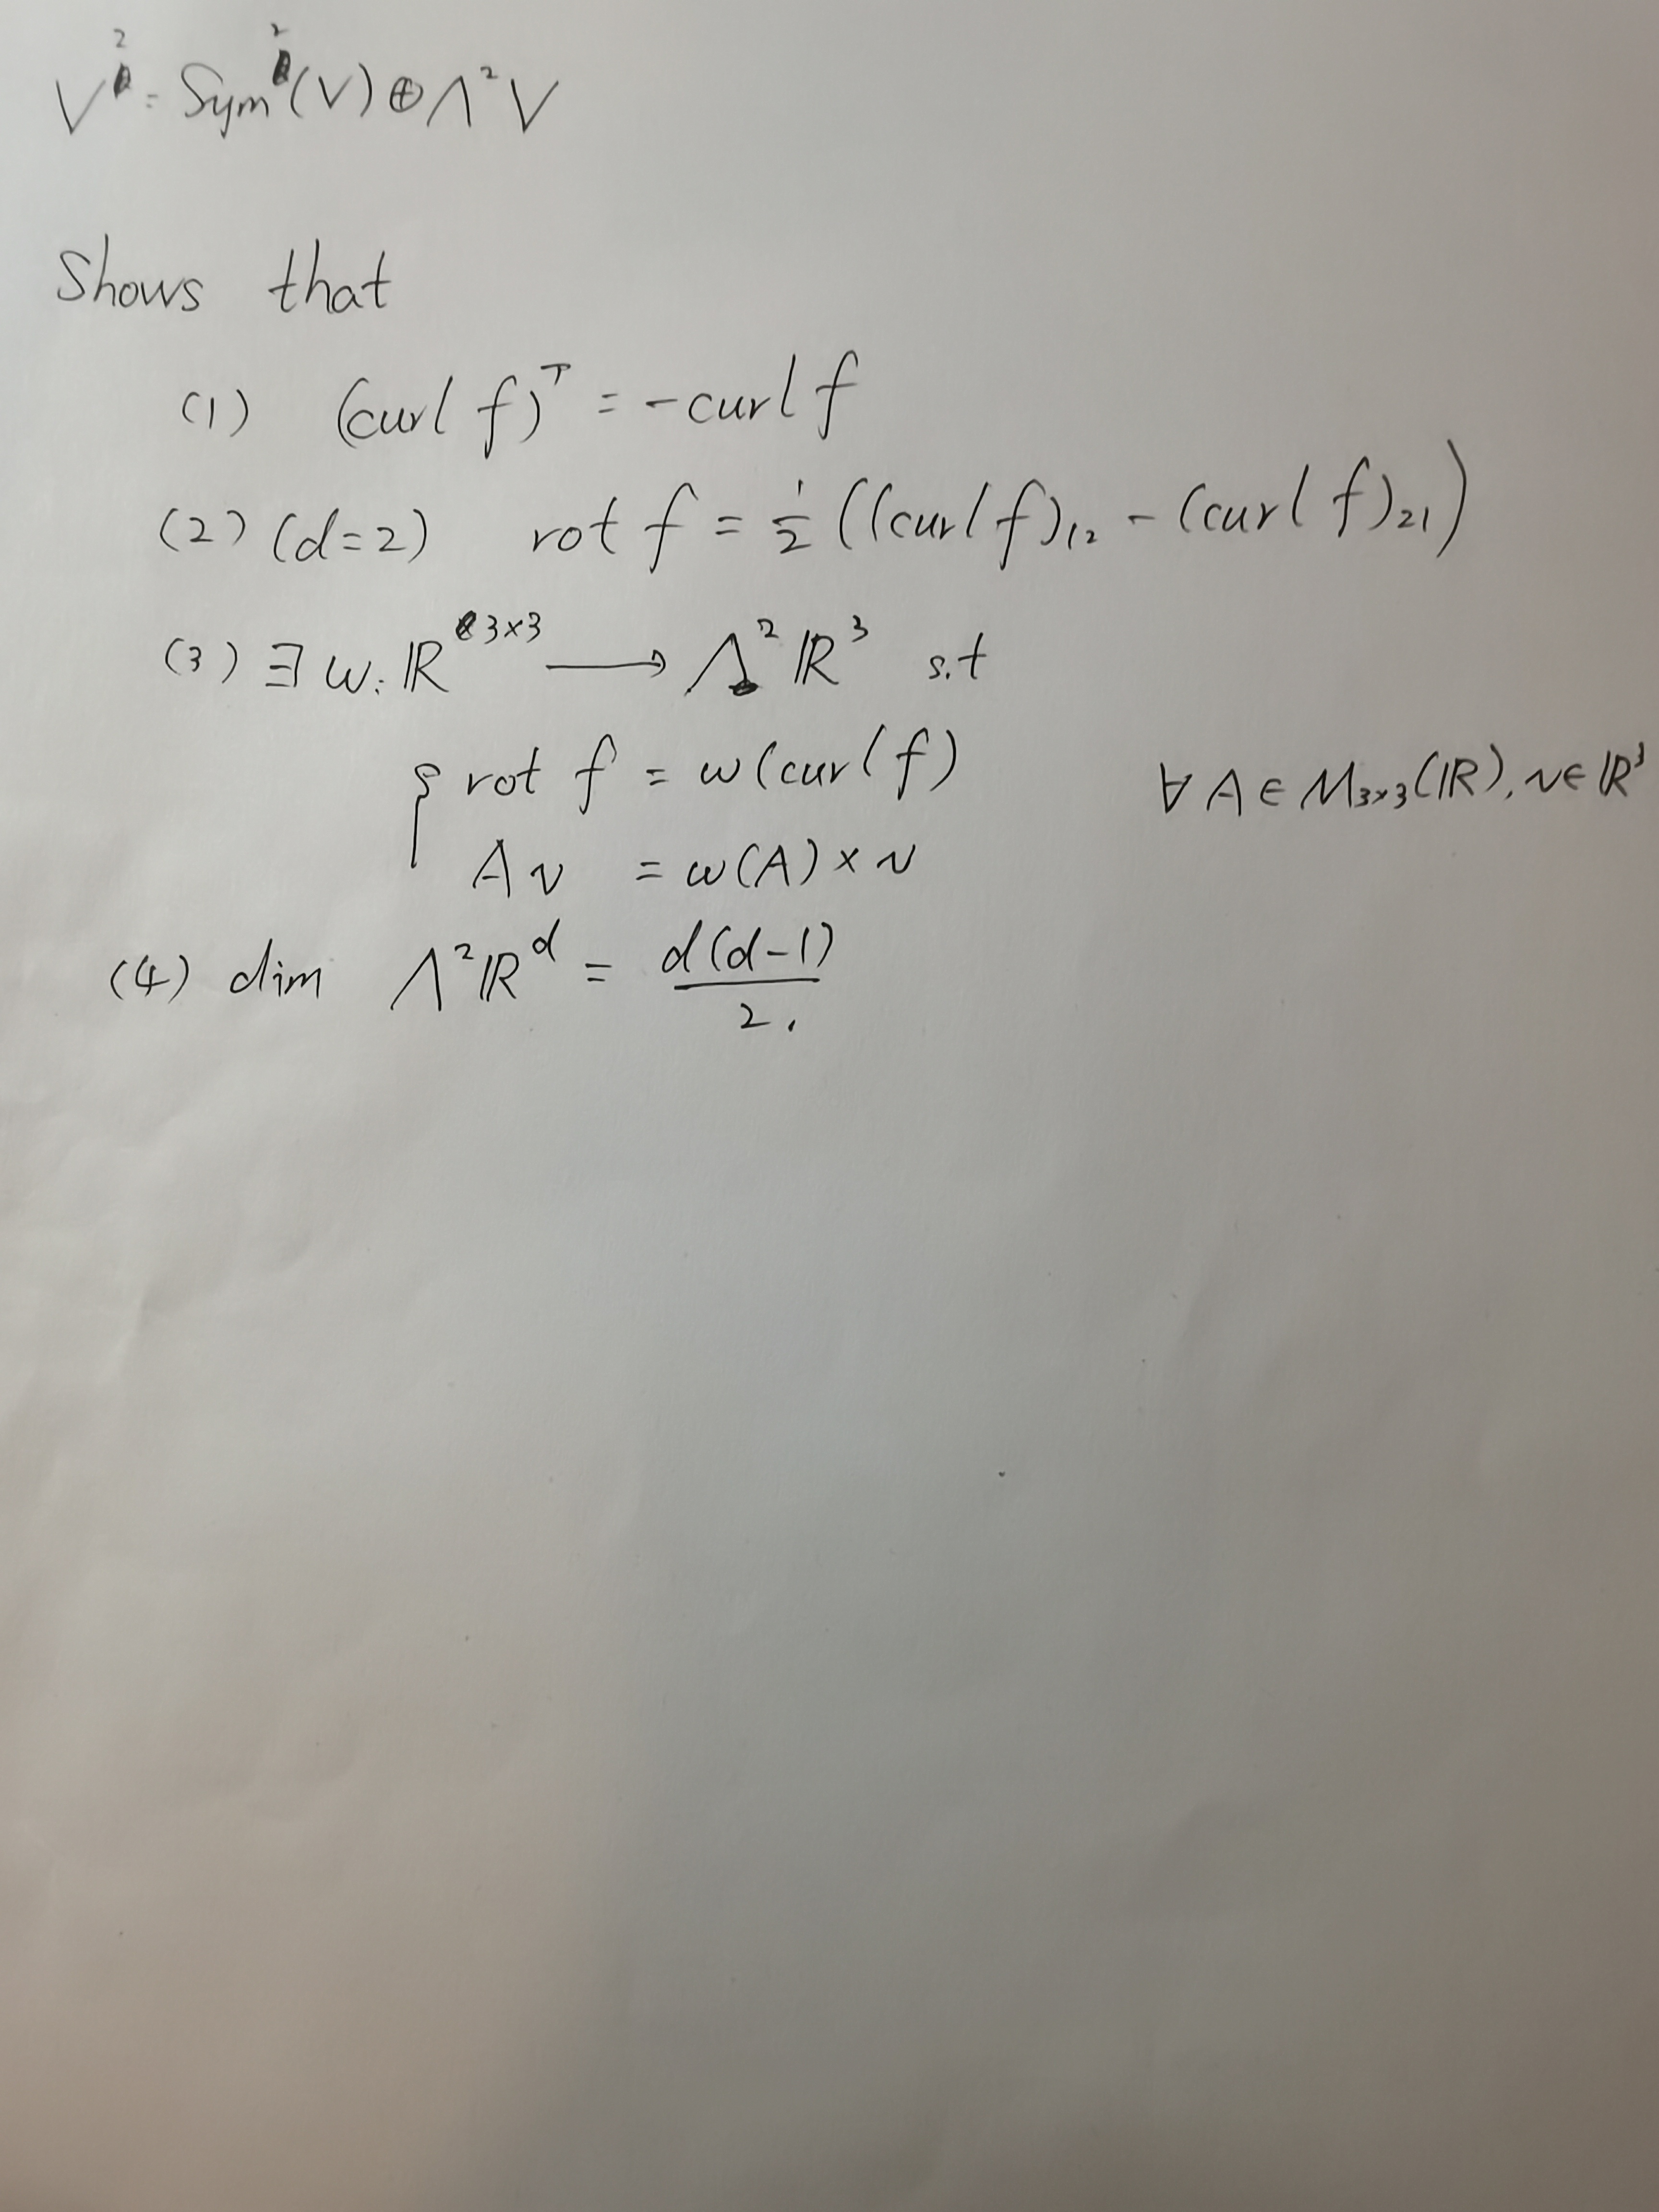 V² = Sym²(V) ⊕ Λ²V
Shows that
(1) (curl f)ᵀ = -curl f
(2) (d=2) rot f = 1/2 ((curl f)₁₂ - (curl f)₂₁)
(3) ∃ w: ℝ³ˣ³ ⟶ Λ²ℝ³ s.t
{ rot f = w(curl f) ∀ A ∈ M₃ₓ₃(ℝ), v ∈ ℝ³
A v = w(A) × v
(4) dim Λ²ℝᵈ = d(d-1)/2.